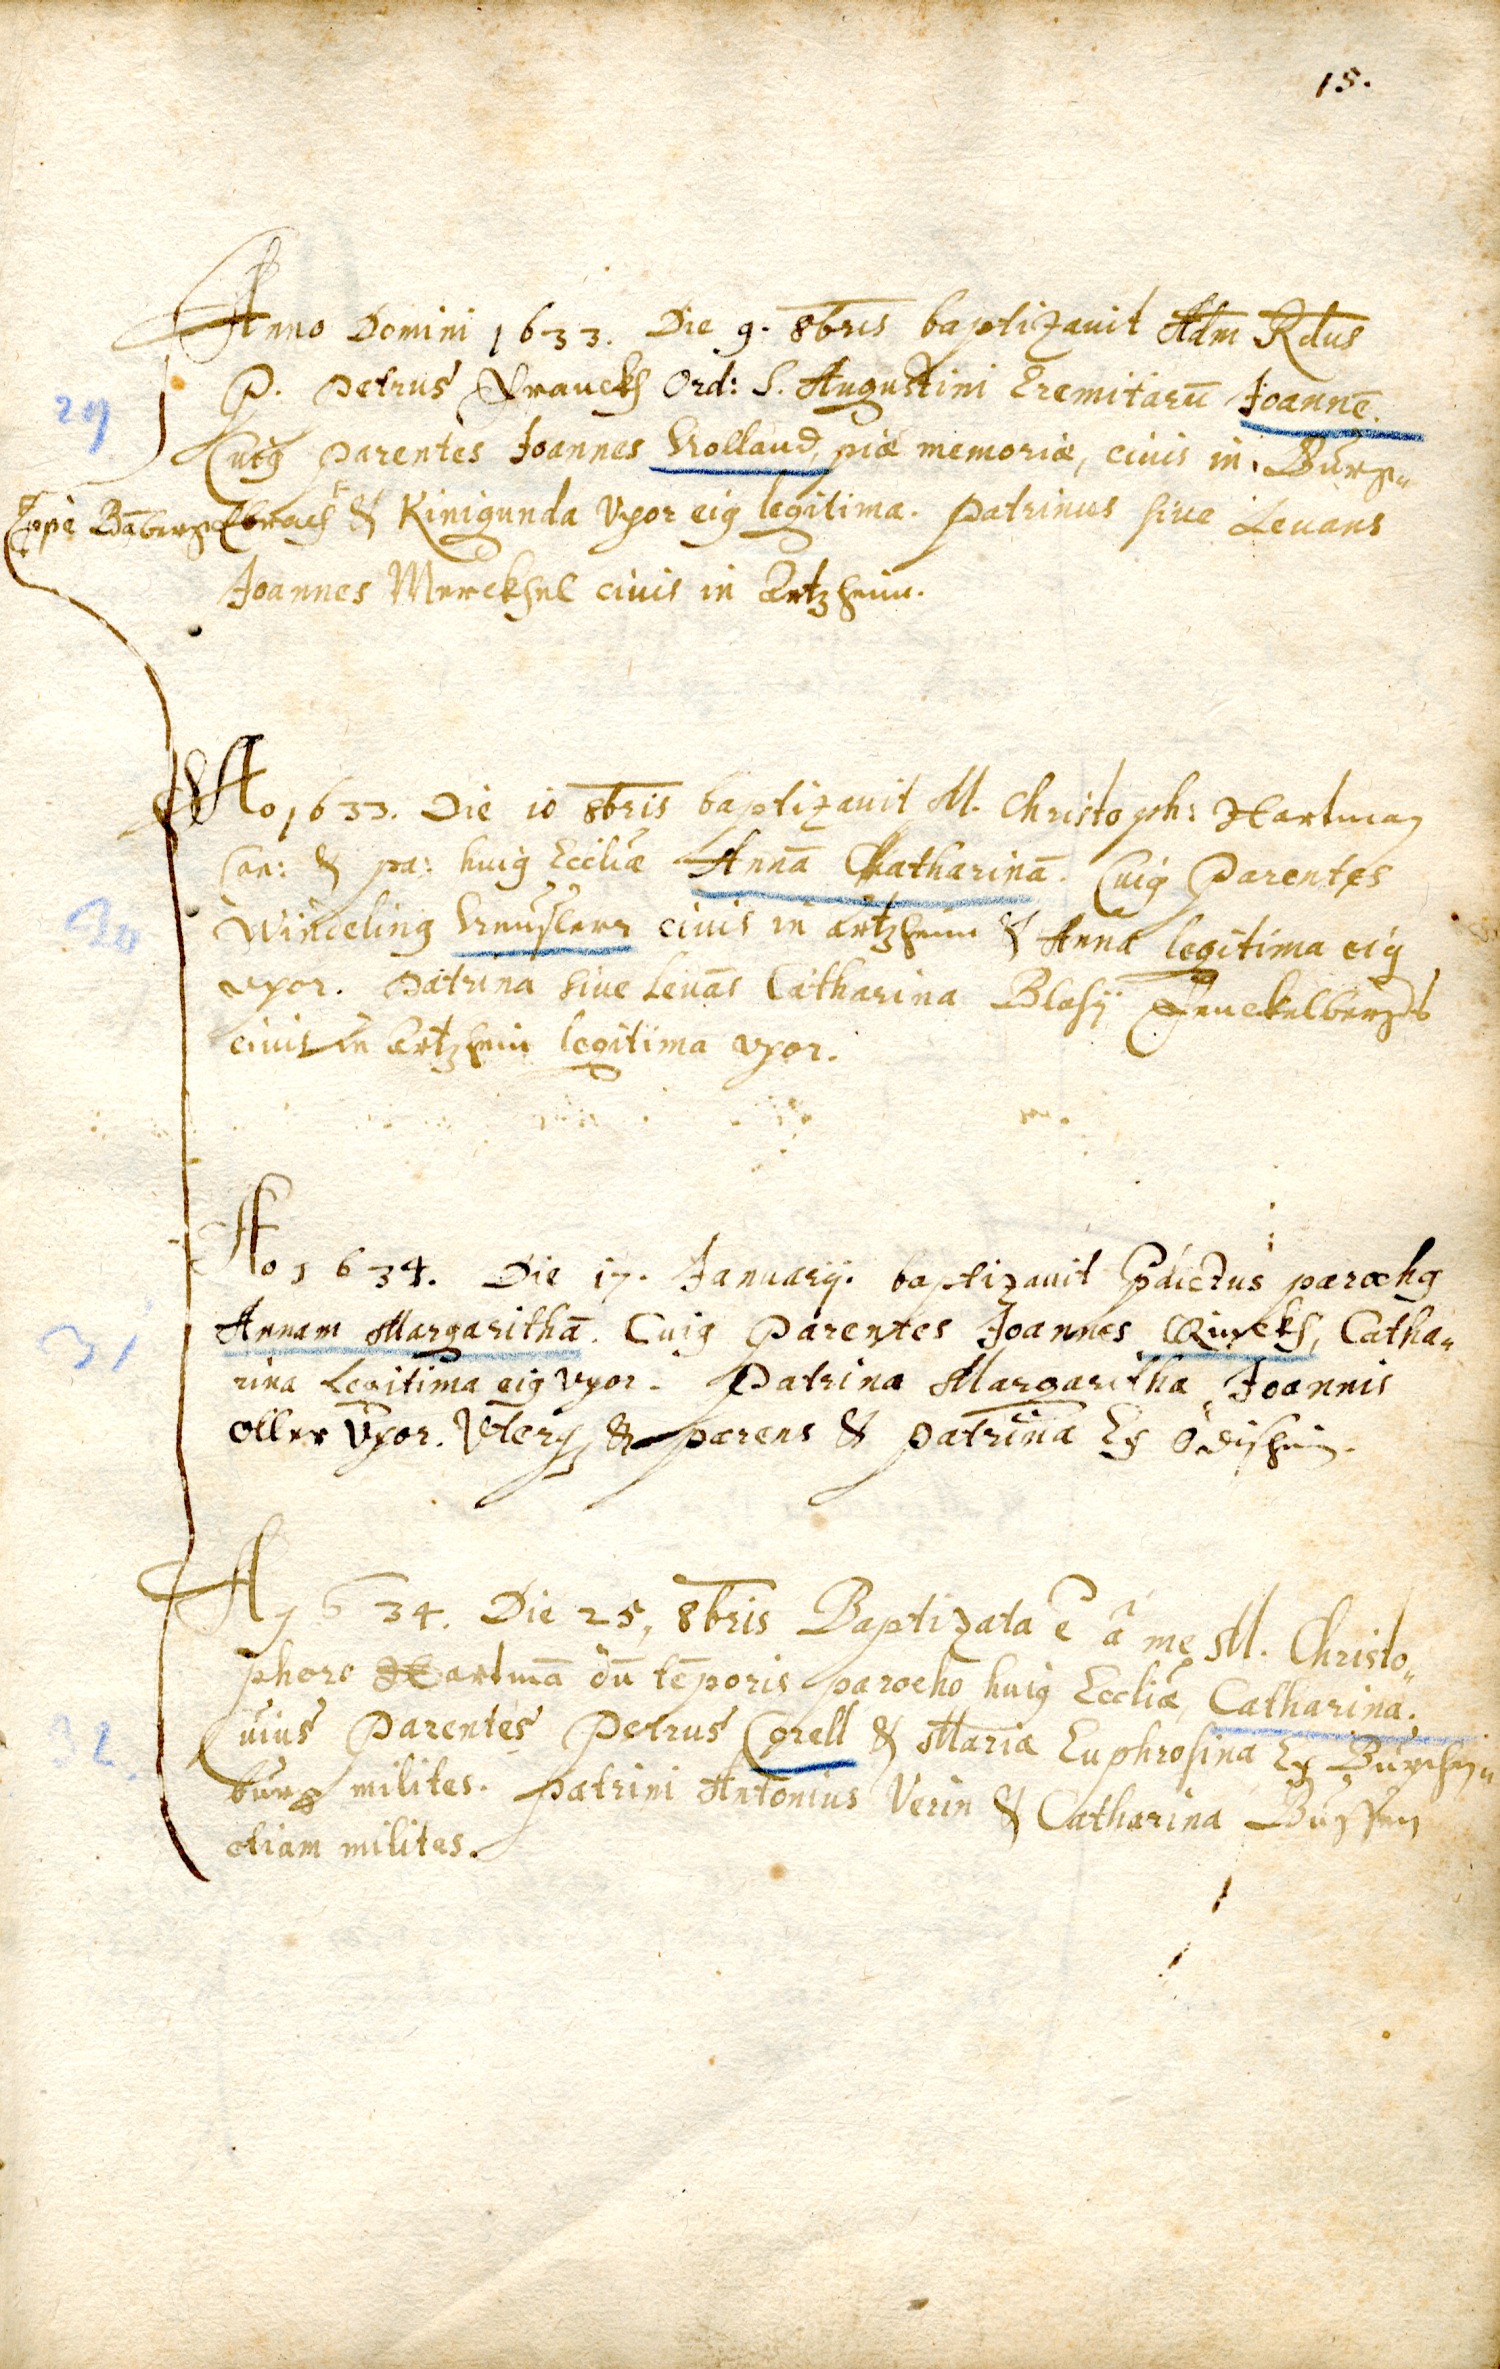 15.
Anno Domini 1633. Die 9. 8bris baptizauit Adm Rdus
29
P. Petrus Franckh Ord: S. Augustini Eremitarū Joannē.
Cuig parentes Joannes Krolland, piæ memoriæ, ciuis in Burg-
ebrach & Kinigunda Vxor eig legitima. Patrinus siue Leuans
Joannes Merckhel ciuis in Artzheim.
Ao 1633. Die 10 8bris baptizauit M. Christoph: Hartman
30
Can: & pa: huig Eccliæ Annā Chatharinā. Cuig Parentes
Windeling Kreuslerr ciuis in artzheim & Anna legitima eig
vxor. Patrina siue Leuās Catharina Blasij Jenckelbergs
ciuis in Artzheim legitima vxor.
Ao 1634. Die 17. Januarij. baptizauit Pdictus parochg
31
Annam Margarithā. Cuig Parentes Joannes Rinckh, Catha-
rina Legitima eig vxor. Patrina Margaritha Joannis
oller Vxor. Vterq & parens & Patrina Ex Ödisheim.
A 1634. Die 25, 8bris Baptizata ē â me M. Christo-
phoro Hartmā dū tēporis parocho huig Eccliæ, Catharina.
32
Cuius Parentes Petrus Corell & Maria Euphrosina Ex
burg milites. Patrini Antonius Verin & Catharina
etiam milites.